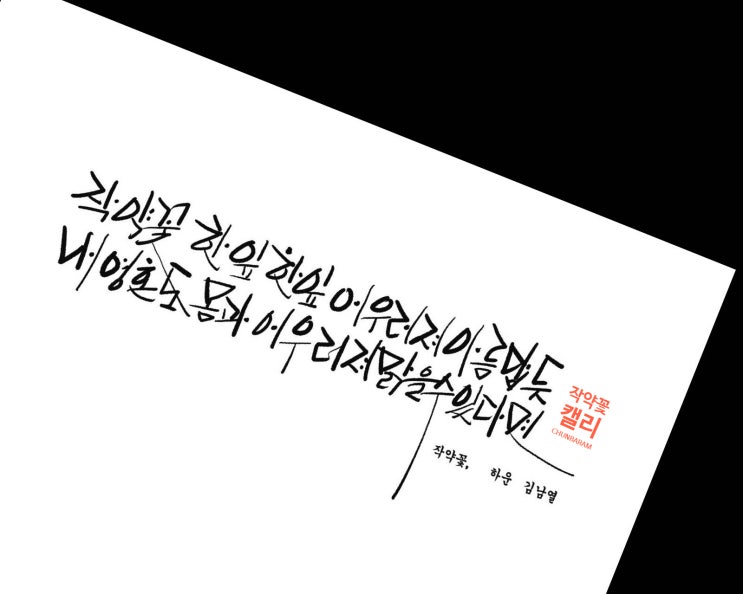 작약꽃 한 잎 한 잎 어우러져 아름답듯
내 영혼도 몸과 어우러져 맑을 수 있다면
작약꽃, 하운 김남열
작약꽃
캘리
CHUNBARAM